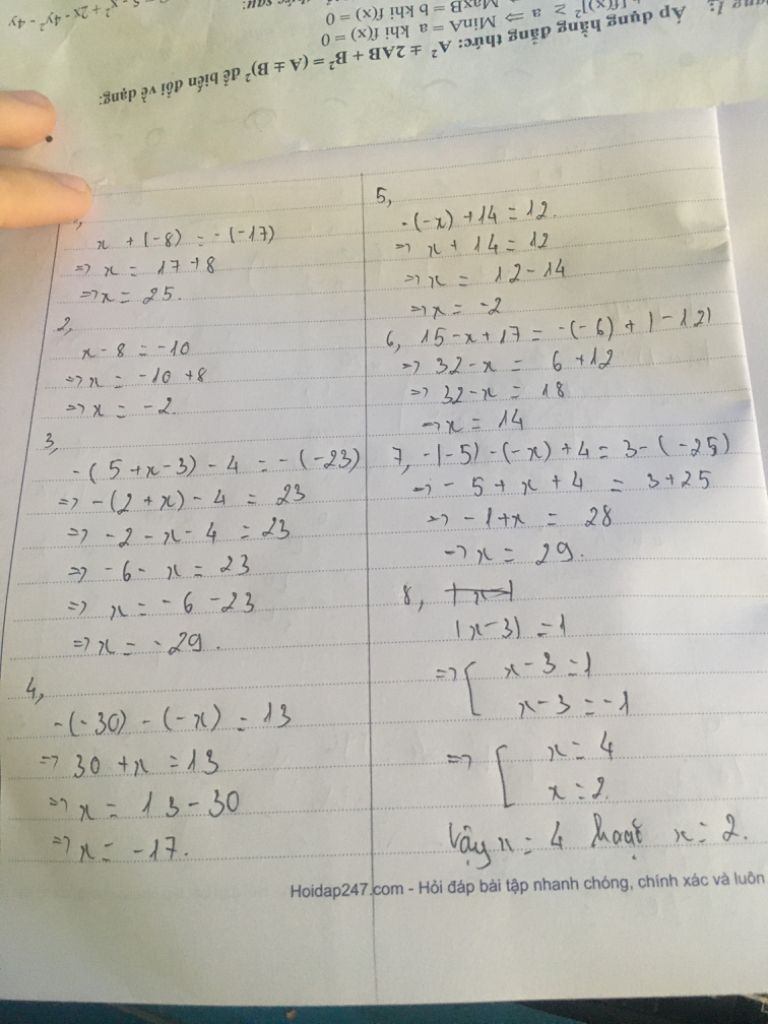 x² + 2x - 4y² - 4y
[f(x)]² ≥ a ⇒ MinA = a khi f(x) = 0
MaxB = b khi f(x) = 0
Áp dụng hằng đẳng thức: A² ± 2AB + B² = (A ± B)² để biến đổi về dạng:
x + (-8) = -(-17)
=> x = 17 + 8
=> x = 25.
2,
x - 8 = -10
=> x = -10 + 8
=> x = -2.
3,
-(5 + x - 3) - 4 = -(-23)
=> -(2 + x) - 4 = 23
=> -2 - x - 4 = 23
=> -6 - x = 23
=> x = -6 - 23
=> x = -29.
4,
-(-30) - (-x) = 13
=> 30 + x = 13
=> x = 13 - 30
=> x = -17.
5,
-(-x) + 14 = 12.
=> x + 14 = 12
=> x = 12 - 14
=> x = -2
6, 15 - x + 17 = -(-6) + |-12|
=> 32 - x = 6 + 12
=> 32 - x = 18
=> x = 14
7, -|-5| - (-x) + 4 = 3 - (-25)
=> -5 + x + 4 = 3 + 25
=> -1 + x = 28
=> x = 29.
8,
|x - 3| = 1
=> [ x - 3 = 1
x - 3 = -1
=> [ x = 4
x = 2.
Vậy x = 4 hoặc x = 2.
Hoidap247.com - Hỏi đáp bài tập nhanh chóng, chính xác và luôn